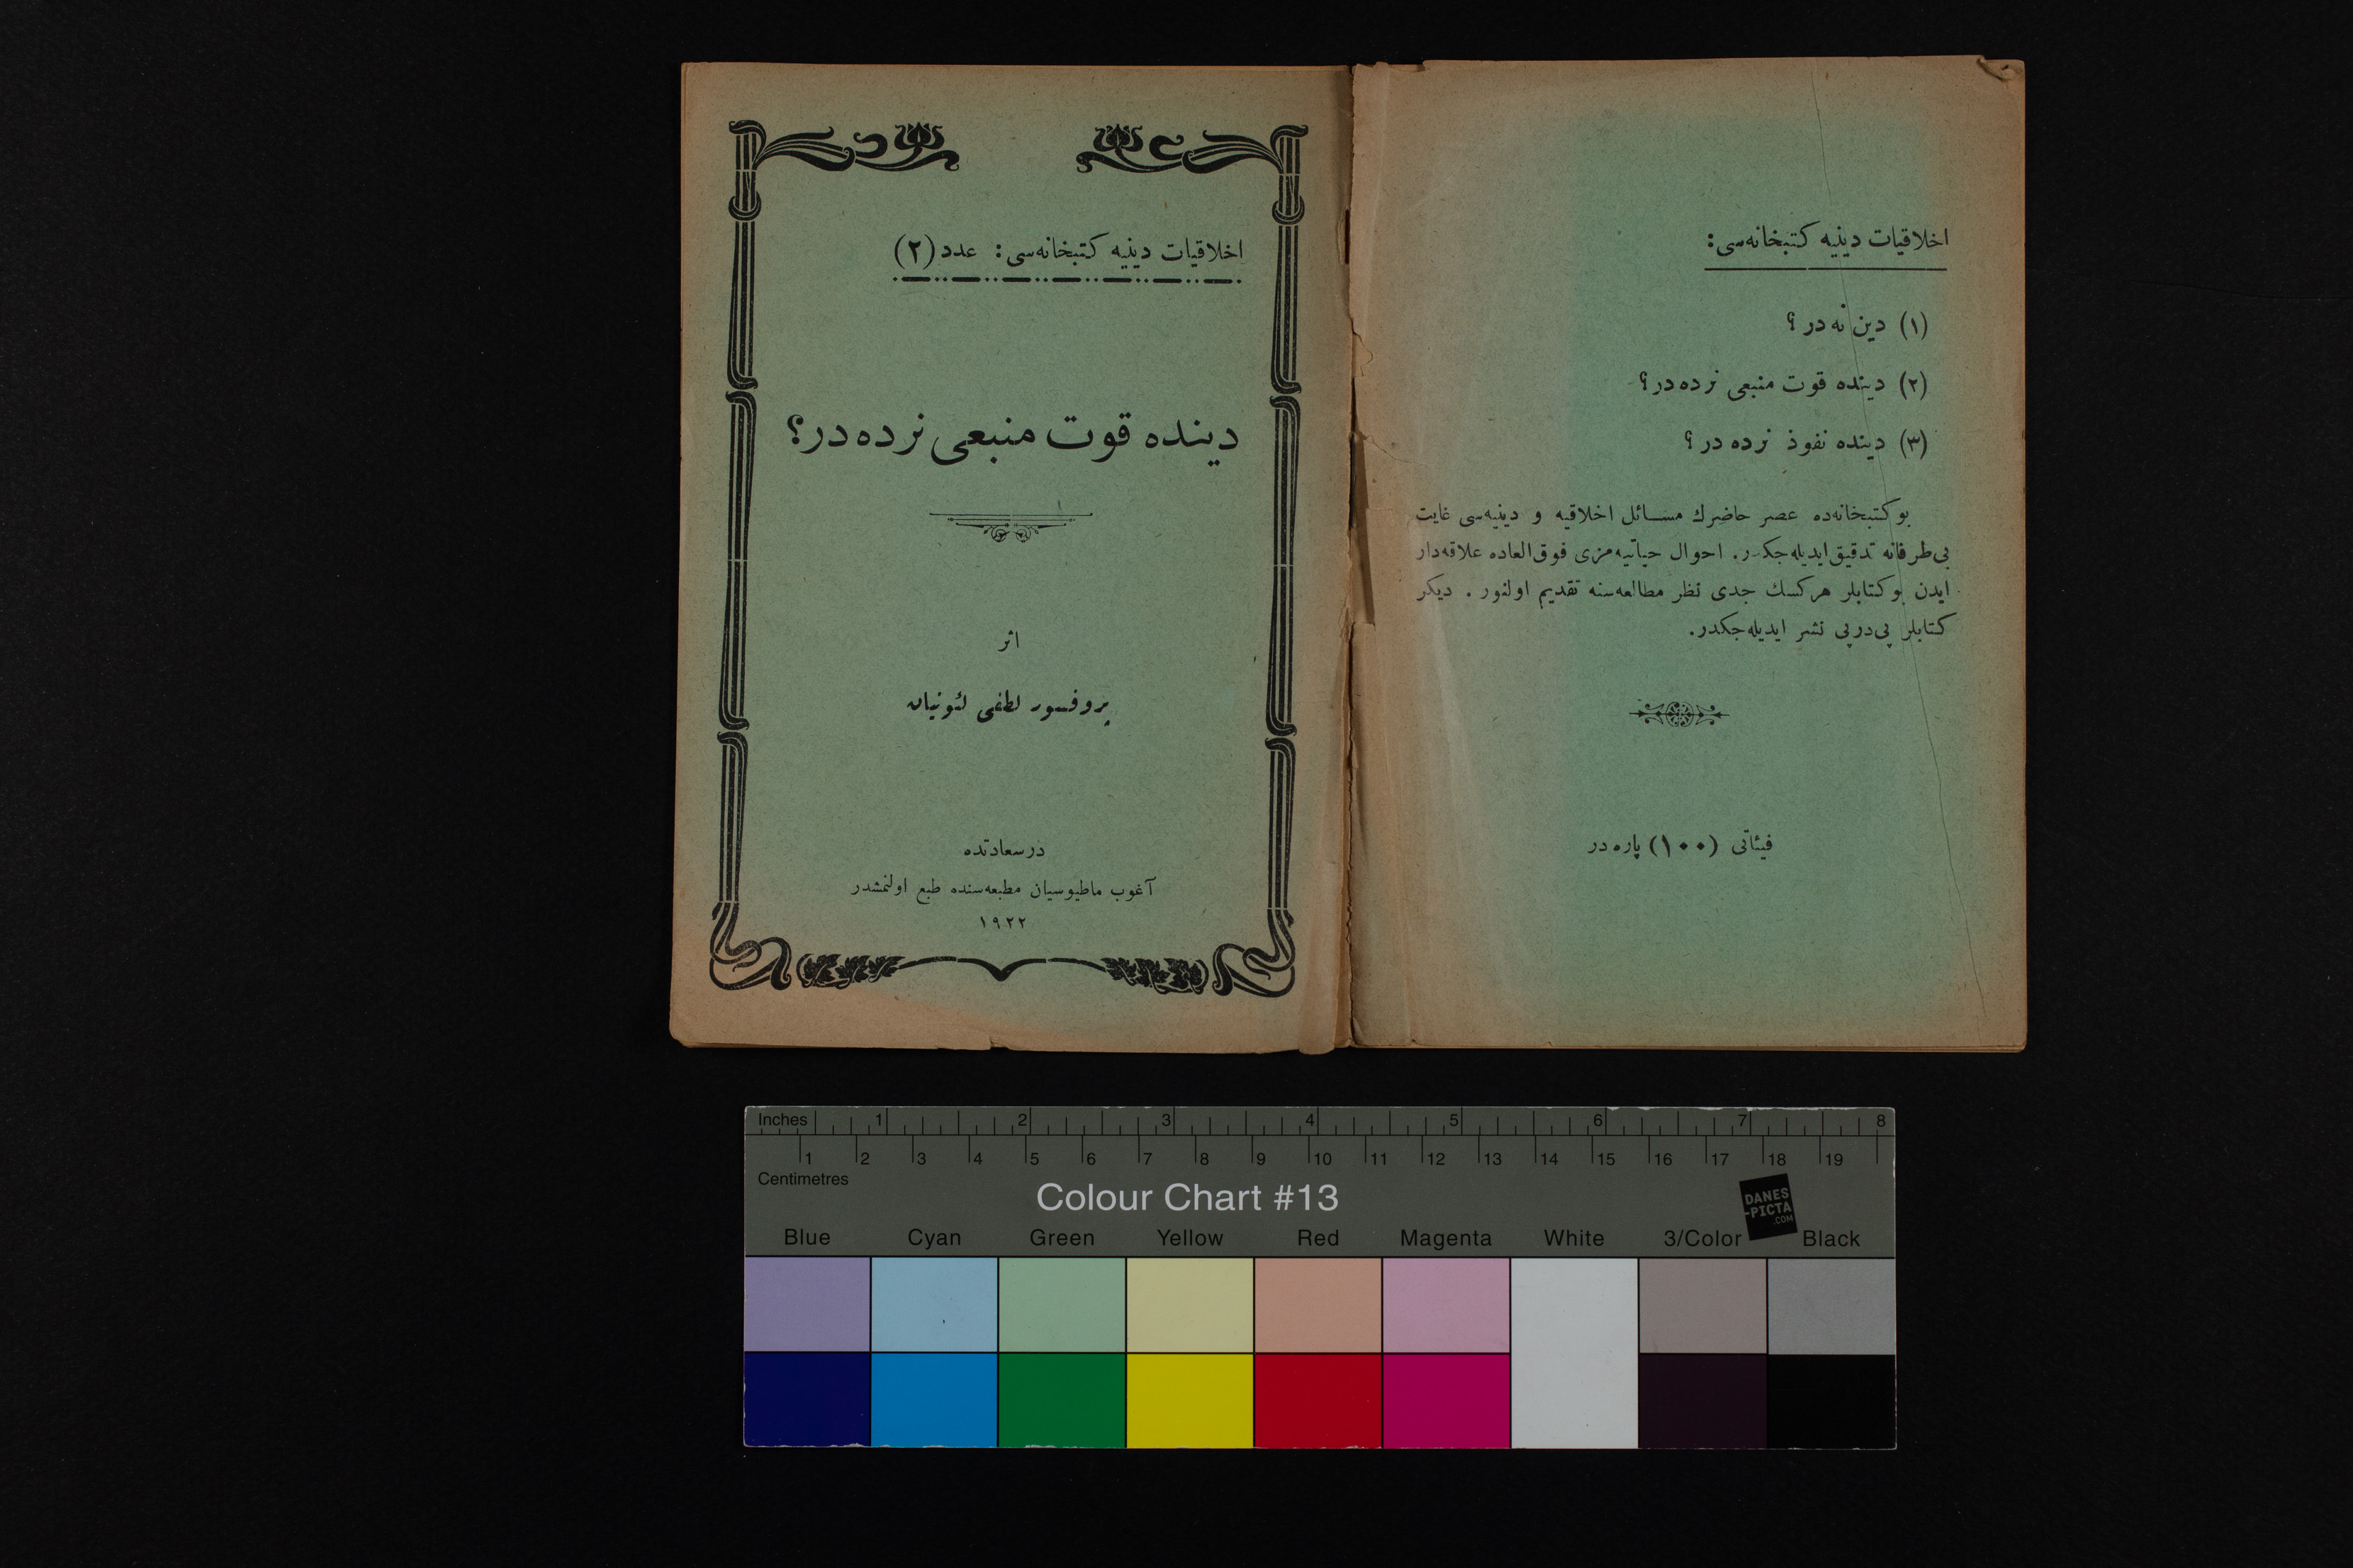 اخلاقیات دینیه کتبخانه‌سی:
(۱) دین نه در ؟
(۲) دینده قوت منبعی نرده در؟
(۳) دینده نفوذ نرده در ؟
بو کتبخانه‌ده عصر حاضرك مسائل اخلاقیه و دینیه‌سی غایت
بی‌طرفانه تدقیق ایدیله‌جکدر. احوال حیاتیه‌مزی فوق‌العاده علاقه‌دار
ایدن بو کتابلر هرکسك جدی نظر مطالعه‌سنه تقدیم اولنور . دیکر
کتابلر پی‌درپی نشر ایدیله‌جکدر.
فیئاتی (۱۰۰) پاره در
اخلاقیات دینیه کتبخانه‌سی: عدد (۲)
دینده قوت منبعی نرده در؟
اثر
پروفسور لطفی لئونیان
درسعادتده
آغوب ماطیوسیان مطبعه‌سنده طبع اولنمشدر
۱۹۲۲
Inches 1 2 3 4 5 6 7 8
1 2 3 4 5 6 7 8 9 10 11 12 13 14 15 16 17 18 19
Centimetres
Colour Chart #13
DANES
-PICTA
.COM
Blue Cyan Green Yellow Red Magenta White 3/Color Black